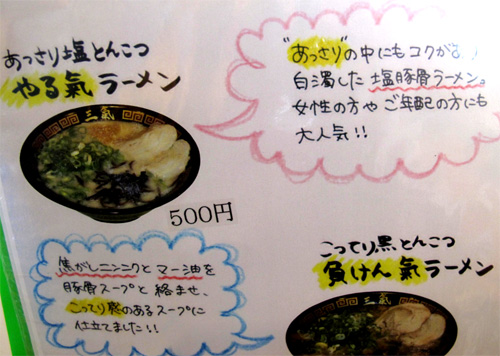 あっさり塩とんこつ
やる氣ラーメン
三氣
500円
"あっさり"の中にもコクがあり
白濁した塩豚骨ラーメン。
女性の方やご年配の方にも
大人気!!
焦がしニンニクとマー油を
豚骨スープと絡ませ、
こってり感のあるスープに
仕立てました!!
こってり黒とんこつ
負けん氣ラーメン
三氣